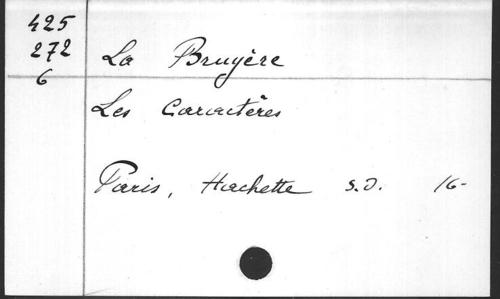 425
272
6
La Bruyère
Les Caractères
Paris, Hachette s.d. 16-